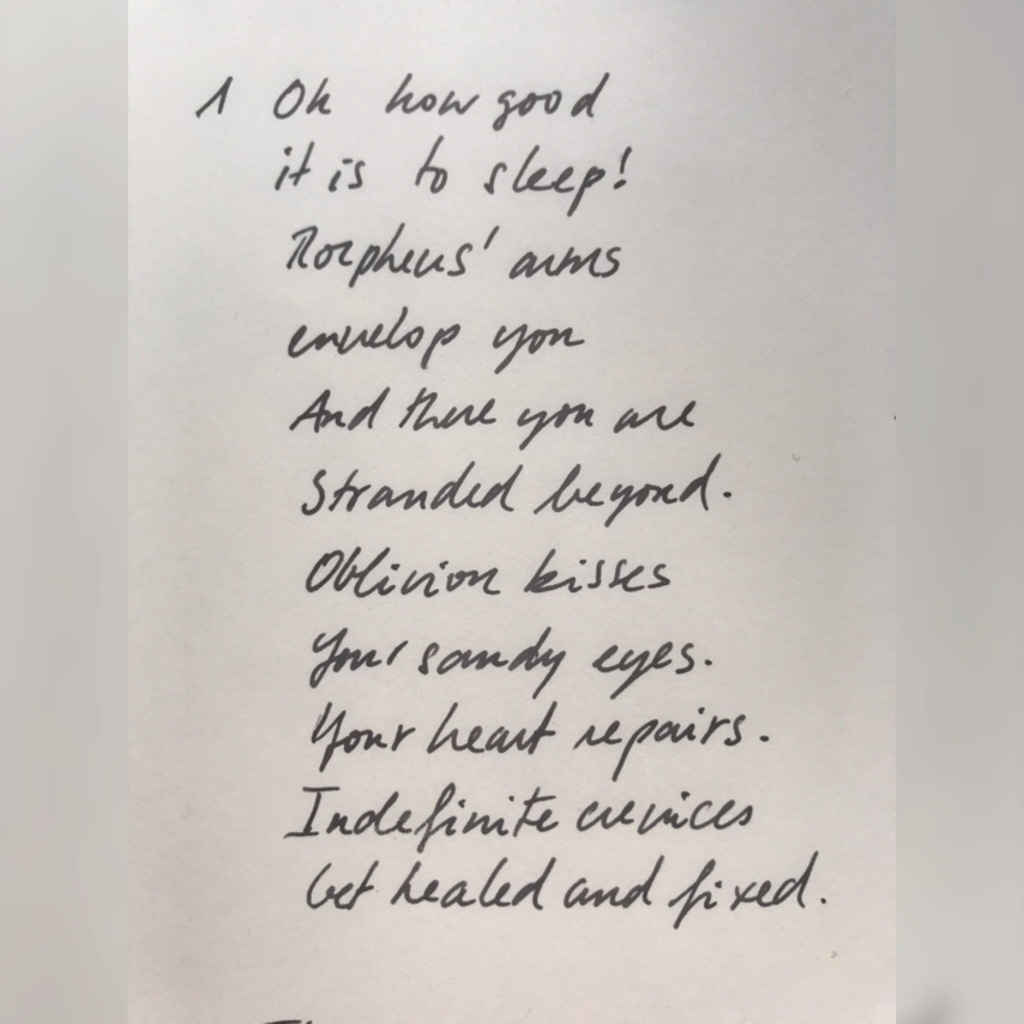 1 Oh how good
it is to sleep!
Morpheus' arms
envelop you
And there you are
Stranded beyond.
Oblivion kisses
Your sandy eyes.
Your heart repairs.
Indefinite crevices
Get healed and fixed.